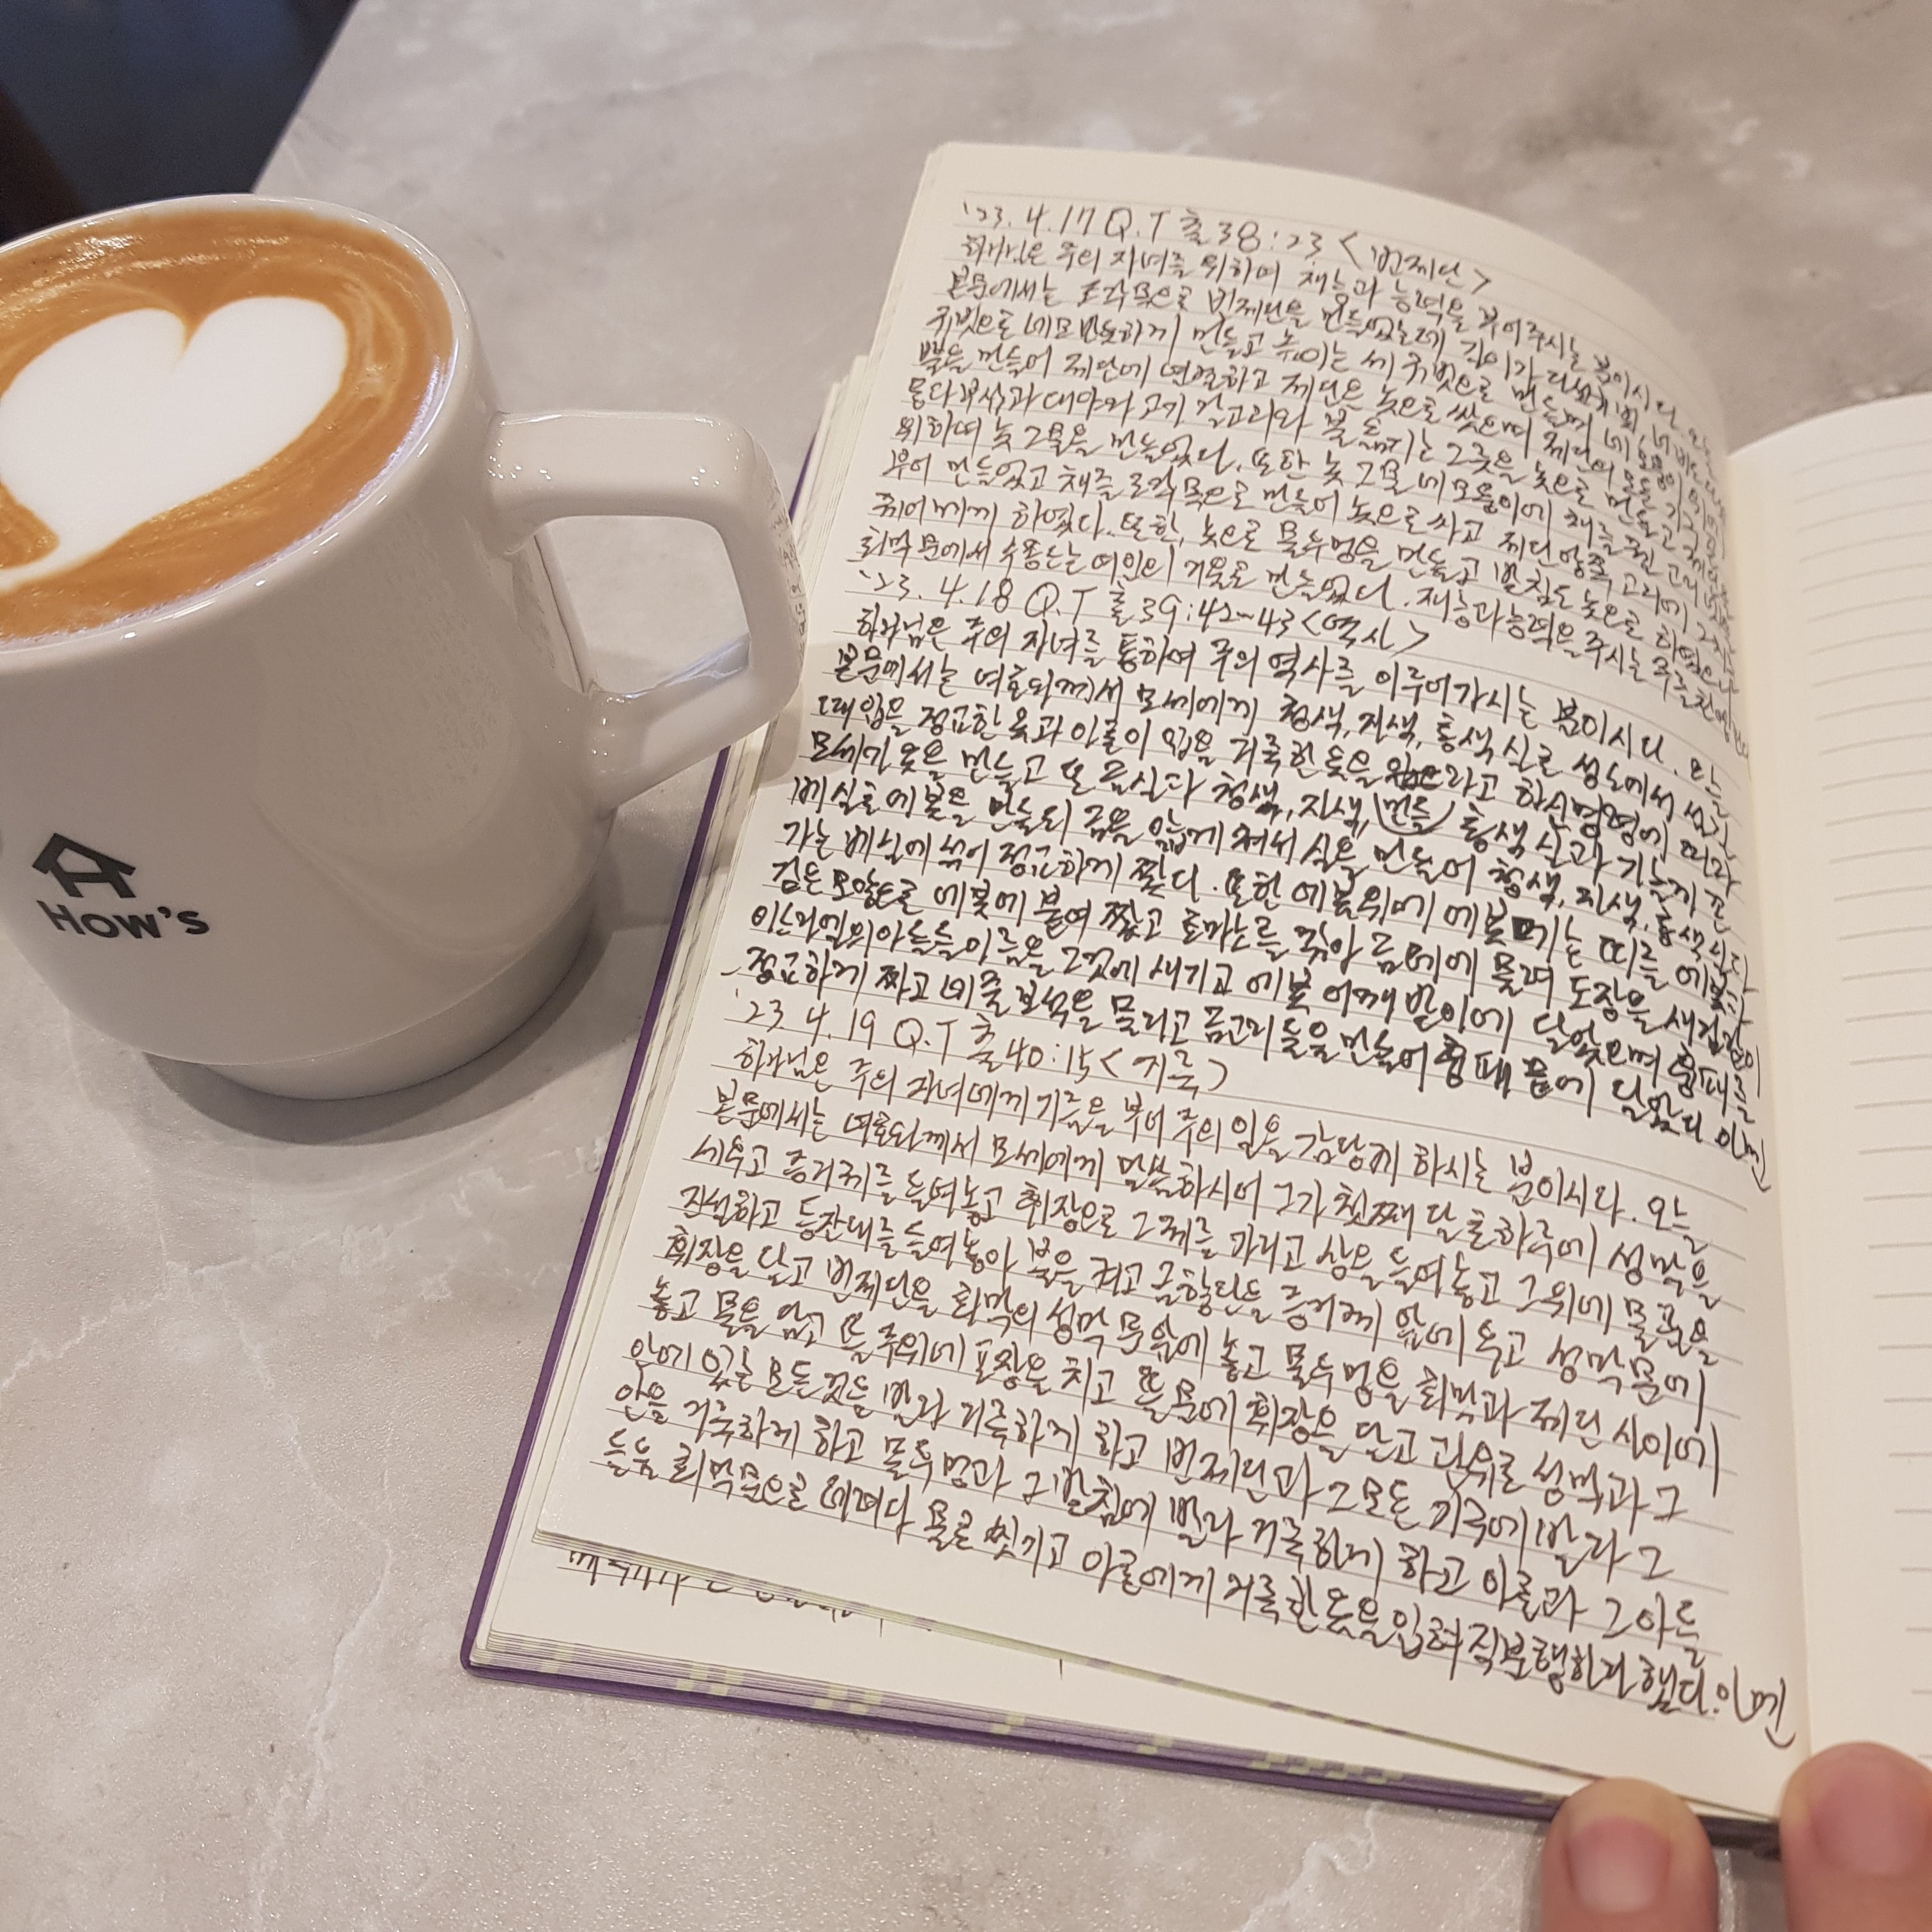 How's
'23. 4. 17 Q.T 출 38:23 <번제단>
하나님은 주의 자녀를 위하여 재능과 능력을 부어주시는 분이시다
본문에서는 조각목으로 번제단을 만들었는데 길이가 다섯규빗
규빗으로 네모반듯하게 만들고 높이는 세 규빗으로 만들며 네 모퉁이
뿔을 만들어 제단에 연결하고 제단은 놋으로 쌌으며 제단의 모든 기구
통과 부삽과 대야와 고기 갈고리와 불 옮기는 그릇을 놋으로 만들고
위하여 놋 그물을 만들었다. 또한 놋 그물 네 모퉁이에 채를 꿸 고리
부어 만들었고 채를 조각목으로 만들어 놋으로 싸고 제단 양쪽 고리에
꿰어 메게 하였다. 또한, 놋으로 물두멍을 만들고 받침도 놋으로 하였으니
회막 문에서 수종드는 여인의 거울로 만들었다. 재능과 능력을 주시는 주를
'23. 4. 18 Q.T 출 39:42~43 <역사>
하나님은 주의 자녀를 통하여 주의 역사를 이루어가시는 분이시다. 오늘
본문에서는 여호와께서 모세에게 청색, 자색, 홍색 실로 성소에서 섬길
때 입을 정교한 옷과 아론이 입을 거룩한 옷을 라고 하신 명령에 따라
모세가 옷을 만들고 또 금실과 청색, 자색, (만들) 홍색 실과 가늘게 꼰
베실로 에봇을 만들되 금을 얇게 쳐서 실을 만들어 청색, 자색, 홍색 실과
가는 베실에 섞어 정교하게 짰다. 또한 에봇위에 에봇 메는 띠를 에봇과
같은 모양으로 에봇에 붙여 짰고 호마노를 깎아 금테에 물려 도장을 새김 같이
이스라엘의 아들들 이름을 그것에 새기고 에봇 어깨받이에 달았으며 흉패를
정교하게 짜고 네 줄 보석을 물리고 금고리들을 만들어 흉패 끝에 달았다 아멘
'23 4. 19 Q.T 출 40:15 <기름>
하나님은 주의 자녀에게 기름을 부어 주의 일을 감당케 하시는 분이시다. 오늘
본문에서는 여호와께서 모세에게 말씀하시어 그가 첫째 달 초하루에 성막을
세우고 증거궤를 들여놓고 휘장으로 그 궤를 가리고 상을 들여놓고 그 위에 물품을
진설하고 등잔대를 들여놓아 불을 켜고 금향단을 증거궤 앞에 두고 성막 문에
휘장을 달고 번제단을 회막의 성막 문 앞에 놓고 물두멍을 회막과 제단 사이에
놓고 물을 담고 뜰 주위에 포장을 치고 뜰 문에 휘장을 달고 관유로 성막과 그
안에 있는 모든 것을 발라 거룩하게 하고 번제단과 그 모든 기구에 발라 그
안을 거룩하게 하고 물두멍과 그 받침에 발라 거룩하게 하고 아론과 그 아들
들을 회막 문으로 데려다 물로 씻기고 아론에게 거룩한 옷을 입혀 직분행하라 했다. 아멘